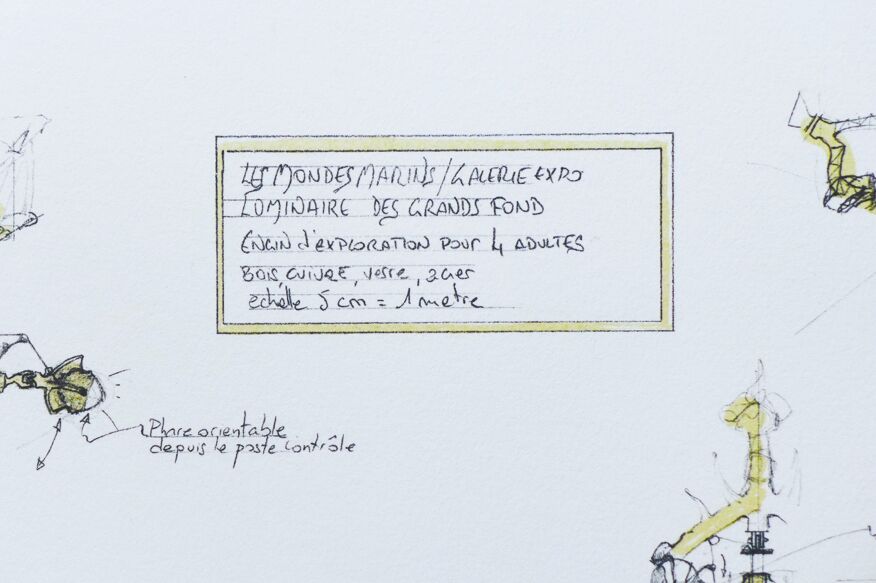 LES MONDES MARINS/GALERIE EXPO
LUMINAIRE DES GRANDS FOND
ENGIN d'EXPLORATION POUR 4 ADULTES
BOIS, CUIVRE, verre, acier
echelle 5 cm = 1 metre
Phare orientable
depuis le poste contrôle